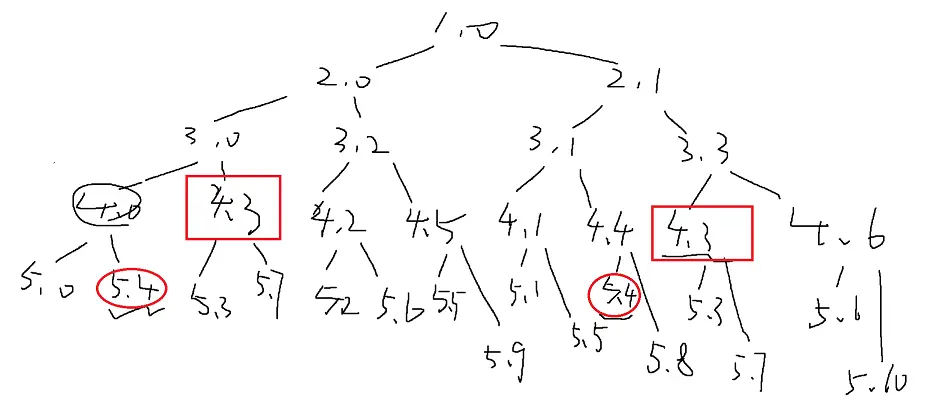 1.0
2.0 2.1
3.0 3.2 3.1 3.3
4.0 4.3 4.2 4.5 4.1 4.4 4.3 4.6
5.0 5.4 5.3 5.7 5.2 5.6 5.5 5.1 5.4 5.3 5.6
5.9 5.5 5.8 5.7 5.10